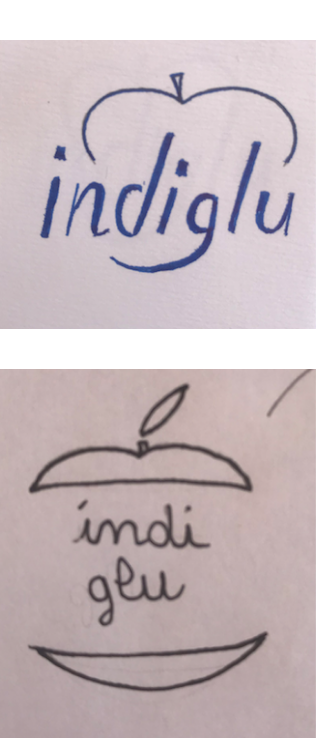 indiglu
indi
glu